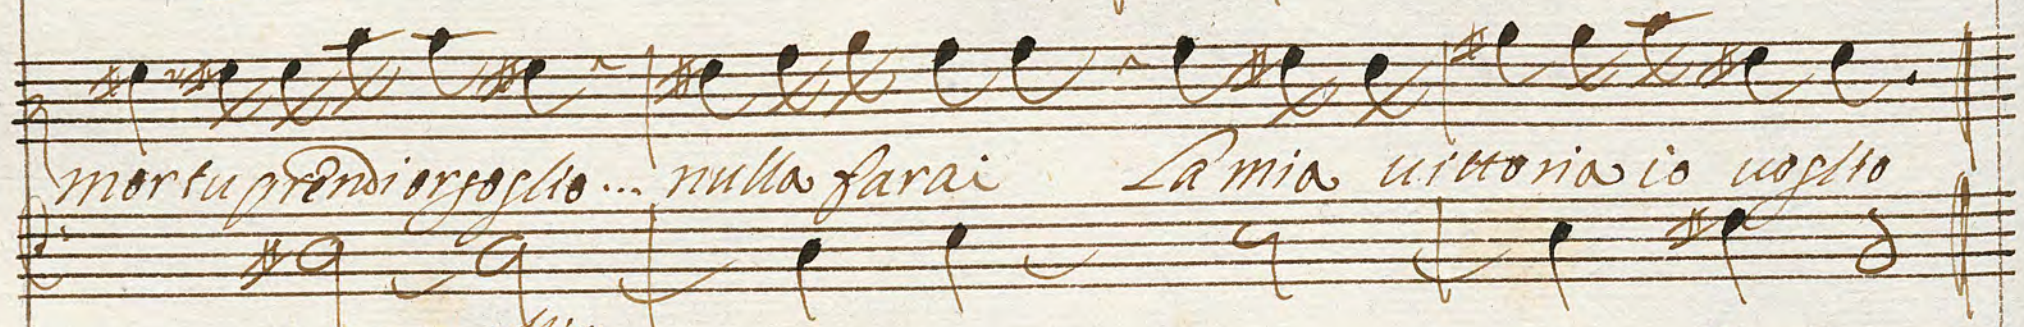 mor tu prendi orgoglio... nulla farai La mia vittoria io voglio